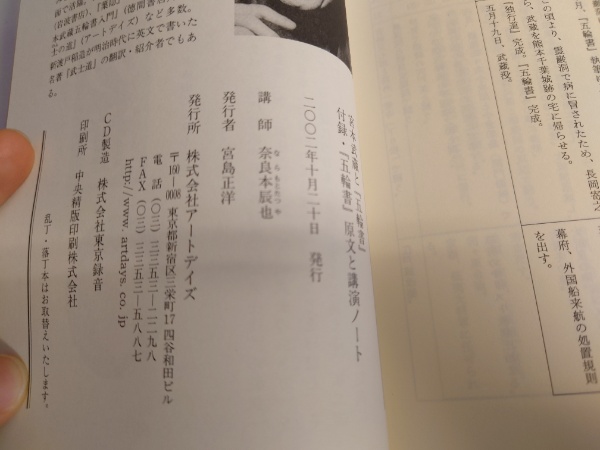 月、『五輪書』執筆
この頃より、霊巌洞で病に冒されたため、長岡寄之
ら、武蔵を熊本千葉城跡の宅に帰らせる。
『独行道』完成。『五輪書』完成。
五月十九日、武蔵没。
幕府、外国船来航の処置規則
を出す。
(岩波書店)、『葉隠
本武蔵五輪書入門』(徳間書店
士の道』(アートデイズ)など多数。
新渡戸稲造が明治時代に英文で書いた
名著『武士道』の翻訳・紹介者でもあ
る。
宮本武蔵と『五輪書』
付録・『五輪書』原文と講演ノート
二〇〇二年十月二十日 発行
講師 奈良本辰也
ならもとたつや
発行者 宮島正洋
発行所 株式会社アートデイズ
〒160-0008 東京都新宿区三栄町17 四谷和田ビル
電話 (〇三)三三五三―二二九八
FAX (〇三)三三五三―五八八七
http://www.artdays.co.jp
CD製造 株式会社東京録音
印刷所 中央精版印刷株式会社
乱丁・落丁本はお取替えいたします。